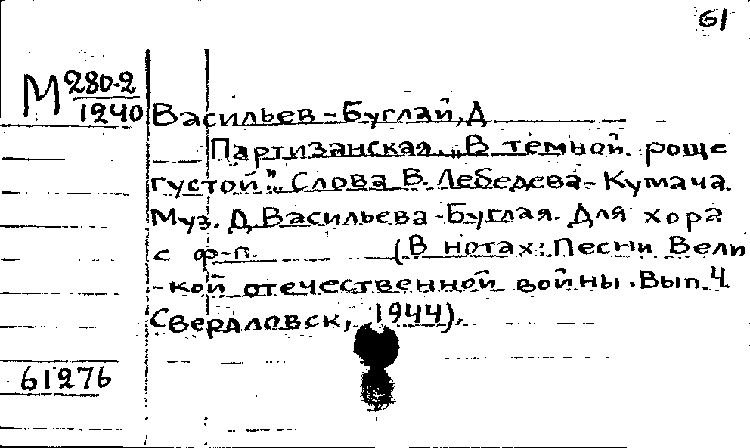 61
М 280-2
1240
Васильев-Буглай, Д
Партизанская. „В темной роще
густой". Слова В. Лебедева-Кумача.
Муз. Д. Васильева-Буглая. Для хора
с ф-п. (В нотах: Песни Вели
-кой отечественной войны. Вып. 4
Свердловск, 1944).
61276